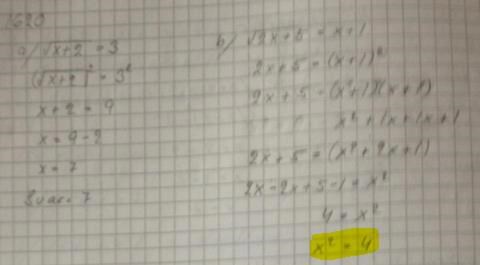 1620
a) √x+2 = 3
(√x+2)² = 3²
x+2 = 9
x = 9-2
x = 7
7
b) √2x+5 = x+1
2x+5 = (x+1)²
2x+5 = (x+1)(x+1)
x²+1x+1x+1
2x+5 = (x²+2x+1)
2x-2x+5-1 = x²
4 = x²
x² = 4